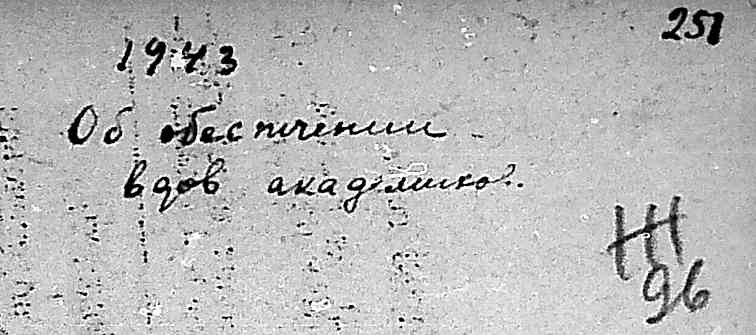 251
1943
Об обеспечении
вдов академиков.
III
96